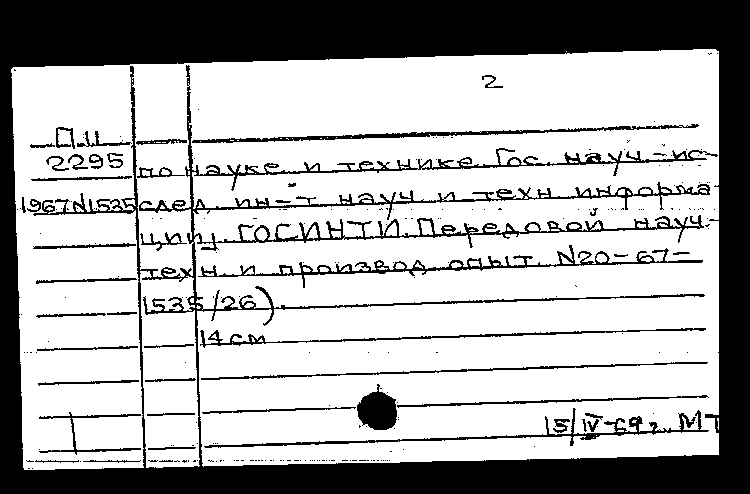 2
П.11
2295 по науке и технике. Гос. науч.-ис-
1967N1535 след. ин-т науч. и техн. информа-
ции. ГОСИНТИ. Передовой науч.-
техн. и производ. опыт. N20-67-
1535/26).
14 см
15/IV-69г. МТ